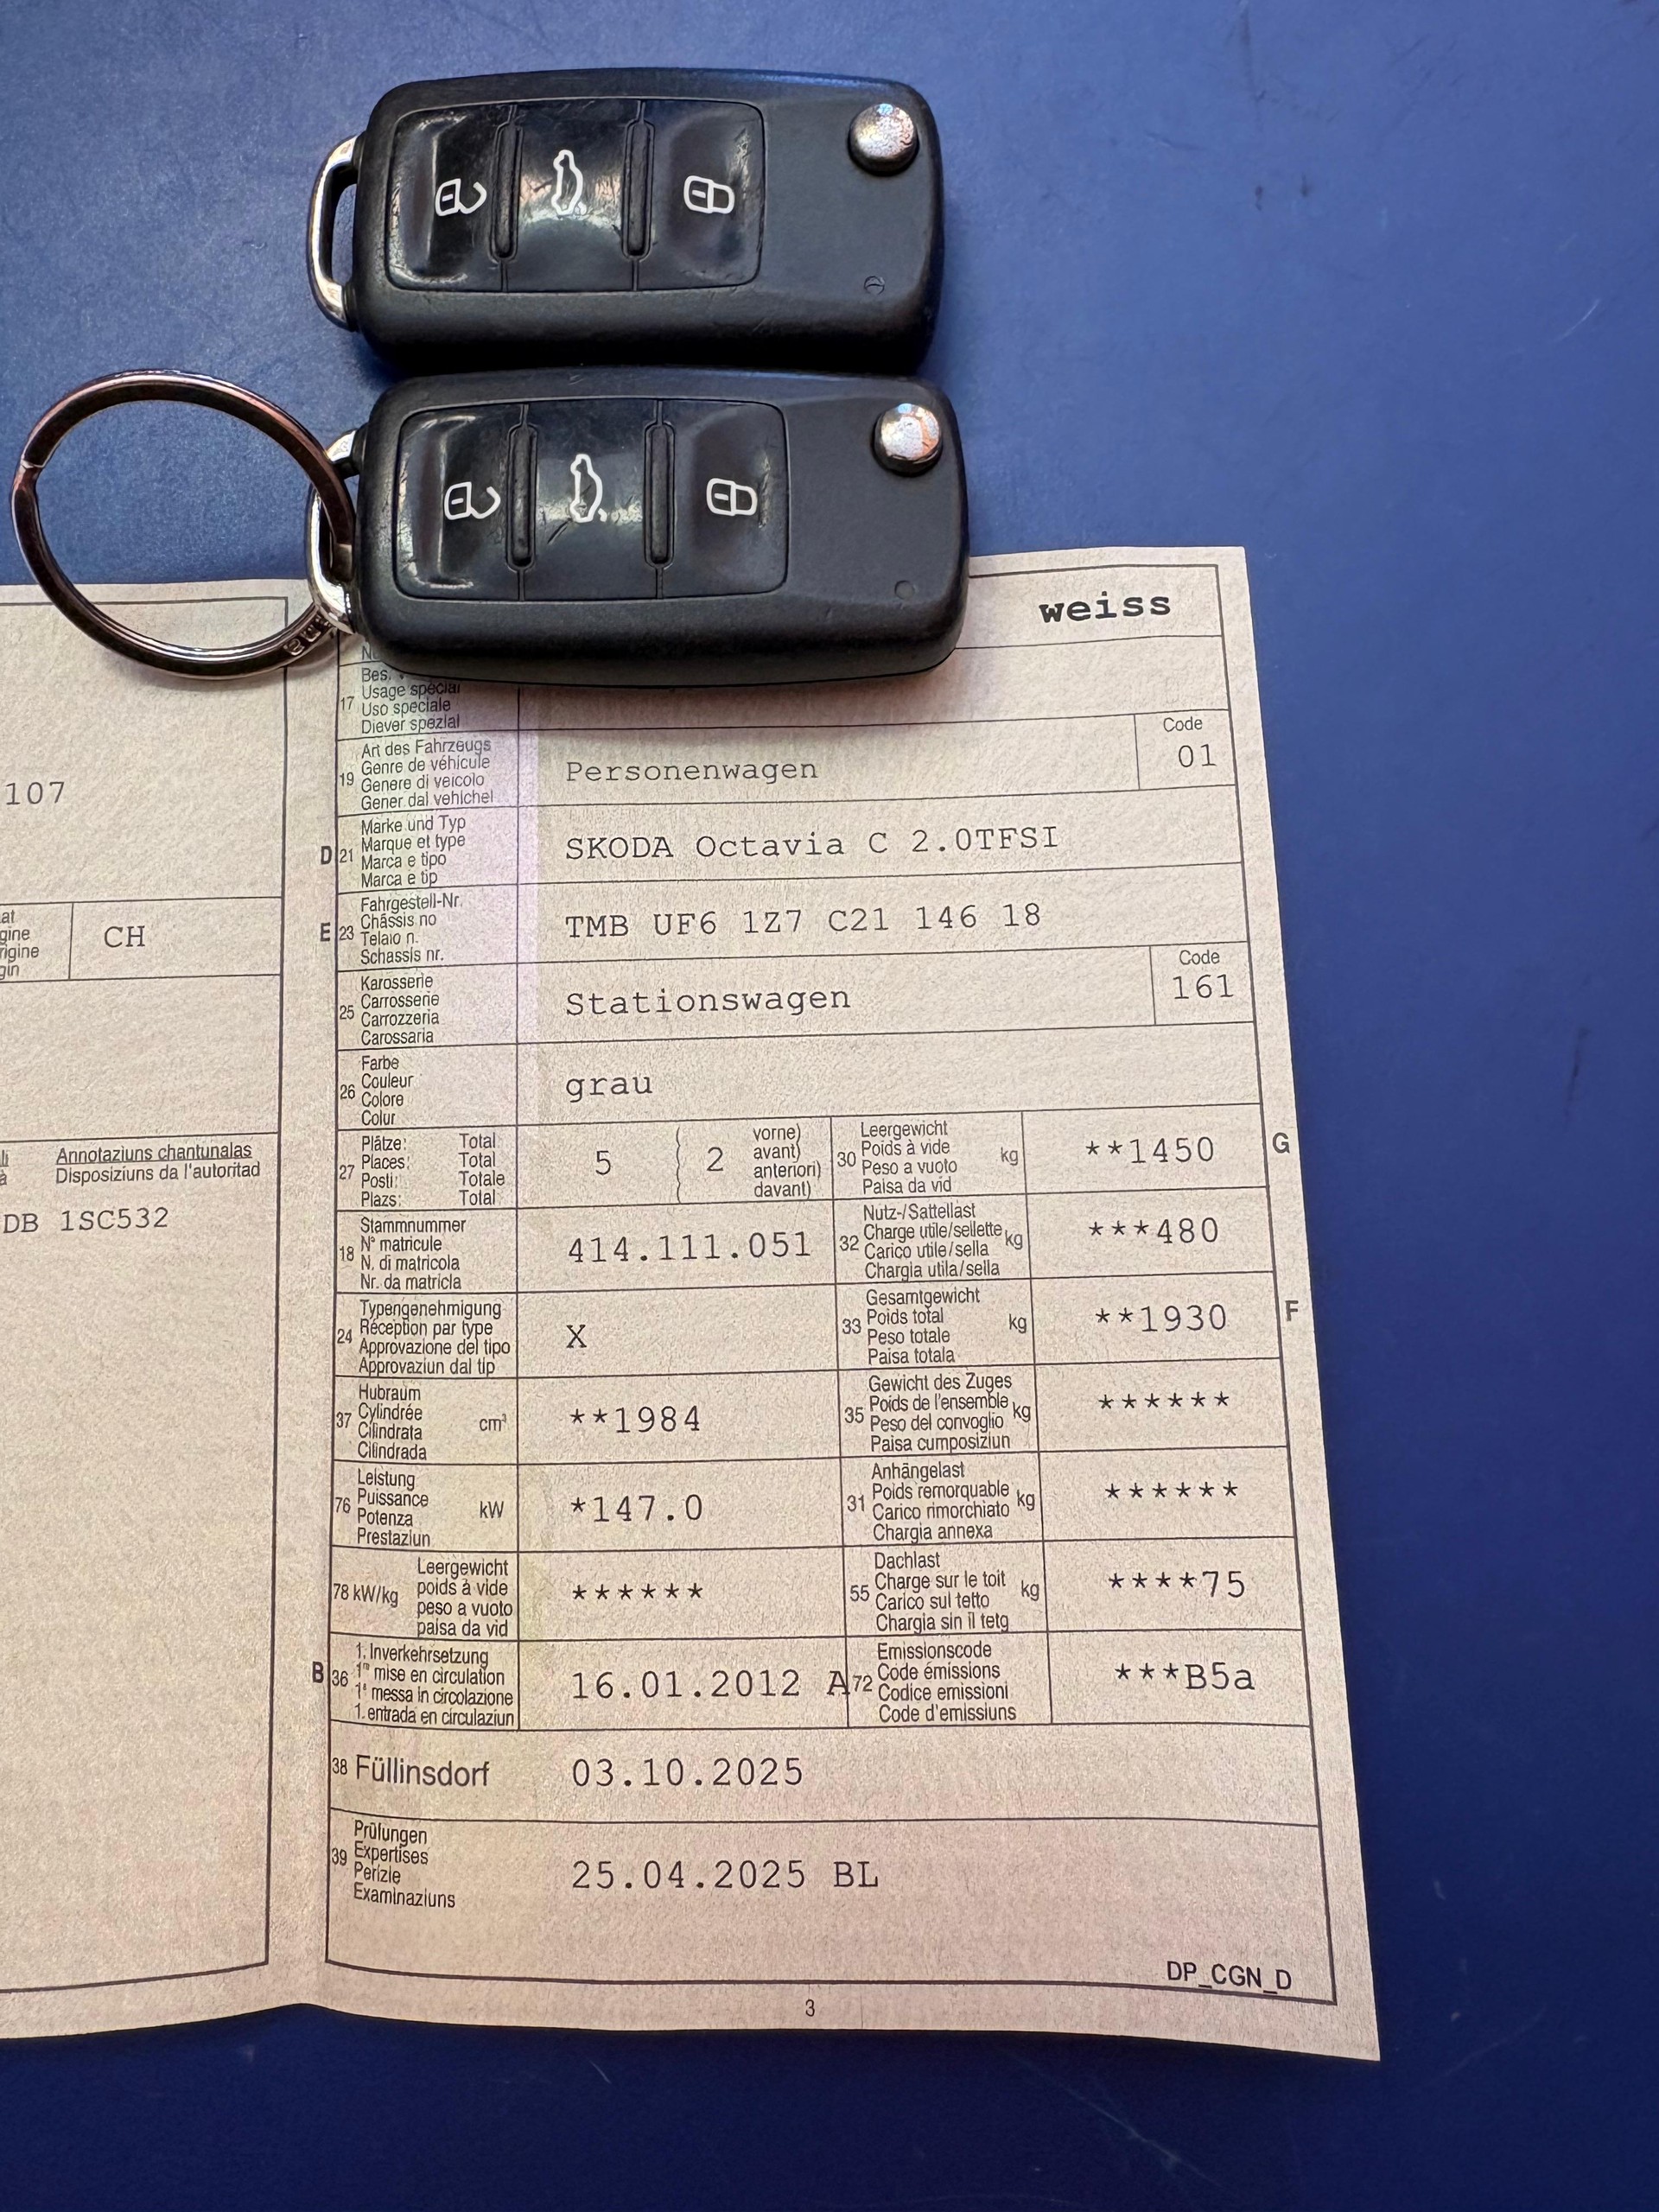 weiss
Bes.
17
Usage spécial
Uso speciale
Diever spezial
19
Art des Fahrzeugs
Genre de véhicule
Genere di veicolo
Gener dal vehichel
Personenwagen
Code
01
107
D
21
Marke und Typ
Marque et type
Marca e tipo
Marca e tip
SKODA Octavia C 2.0TFSI
E
23
Fahrgestell-Nr.
Châssis no
Telaio n.
Schassis nr.
TMB UF6 1Z7 C21 146 18
CH
25
Karosserie
Carrosserie
Carrozzeria
Carossaria
Stationswagen
Code
161
26
Farbe
Couleur
Colore
Colur
grau
27
Plätze: Total
Places: Total
Posti: Totale
Plazs: Total
5 ( 2
vorne)
avant)
anteriori)
davant)
30
Leergewicht
Poids à vide
Peso a vuoto
Paisa da vid
kg
**1450
G
Annotaziuns chantunalas
Disposiziuns da l'autoritad
DB 1SC532
18
Stammnummer
N° matricule
N. di matricola
Nr. da matricla
414.111.051
32
Nutz-/Sattellast
Charge utile/sellette
Carico utile/sella
Chargia utila/sella
kg
***480
24
Typengenehmigung
Réception par type
Approvazione del tipo
Approvaziun dal tip
X
33
Gesamtgewicht
Poids total
Peso totale
Paisa totala
kg
**1930
F
37
Hubraum
Cylindrée
Cilindrata
Cilindrada
cm³
**1984
35
Gewicht des Zuges
Poids de l'ensemble
Peso del convoglio
Paisa cumposiziun
kg
******
76
Leistung
Puissance
Potenza
Prestaziun
kW
*147.0
31
Anhängelast
Poids remorquable
Carico rimorchiato
Chargia annexa
kg
******
78 kW/kg
Leergewicht
poids à vide
peso a vuoto
paisa da vid
******
55
Dachlast
Charge sur le toit
Carico sul tetto
Chargia sin il tetg
kg
****75
B
36
1. Inverkehrsetzung
1re mise en circulation
1a messa in circolazione
1. entrada en circulaziun
16.01.2012 A
72
Emissionscode
Code émissions
Codice emissioni
Code d'emissiuns
***B5a
38 Füllinsdorf
03.10.2025
39
Prüfungen
Expertises
Perizie
Examinaziuns
25.04.2025 BL
DP_CGN_D
3